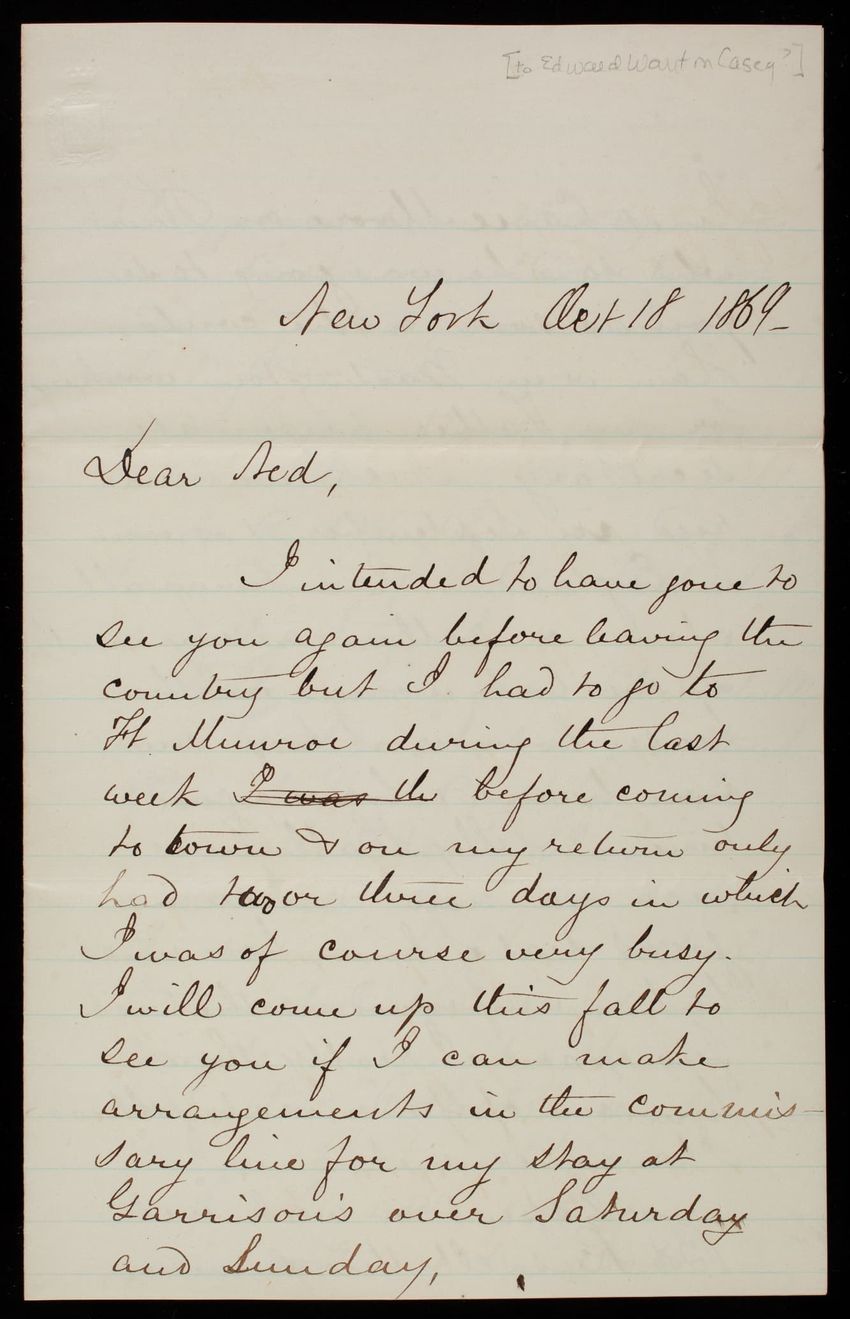 [to Edward Wanton Casey?]
New York Oct 18 1869-
Dear Ned,
I intended to have gone to
see you again before leaving the
country but I had to go to
Ft Munroe during the last
week I was th before coming
to town & on my return only
had two or three days in which
I was of course very busy.
I will come up this fall to
see you if I can make
arrangements in the commis-
sary line for my stay at
Garrison's over Saturday
and Sunday,